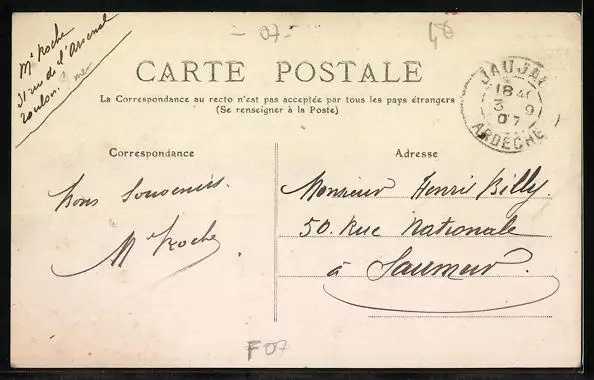 Mˡ Roche
31 rue de l'Arsenal
Toulon.
- 07 -
48
CARTE POSTALE
La Correspondance au recto n'est pas acceptée par tous les pays étrangers
(Se renseigner à la Poste)
JAUJAC
18 40
3 9
07
ARDÈCHE
Correspondance
Bons Souvenirs.
Mˡ Roche
Adresse
Monsieur Henri Billy.
50. Rue Nationale
à Saumur.
F 07